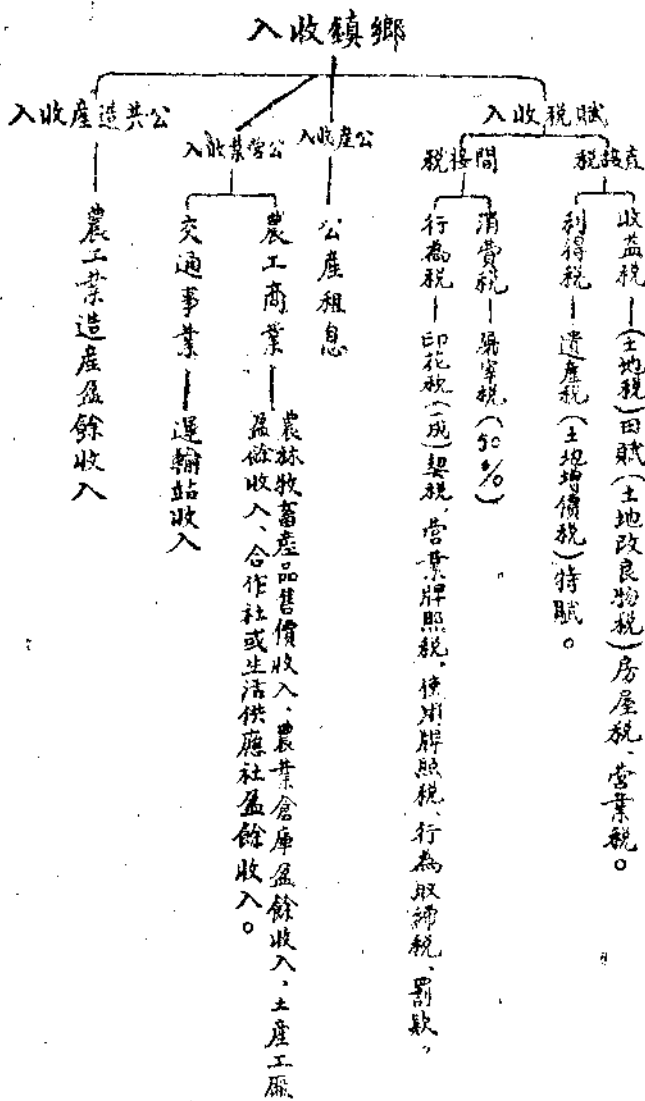 鄉鎮收入
賦稅收入
直接稅
收益稅—(土地稅)田賦(土地改良物稅)房屋稅、營業稅。
利得稅—遺產稅(土地增價稅)特賦。
間接稅
消費稅—屠宰稅(50%)
行為稅—印花稅(一成)契稅、營業牌照稅、使用牌照稅、行為取締稅、罰款。
公產收入
公產租息
公營業收入
農工商業—農林牧畜產品售價收入、農業倉庫盈餘收入、土產工廠
盈餘收入、合作社或生活供應社盈餘收入。
交通事業—運輸站收入
公共造產收入
農工業造產盈餘收入